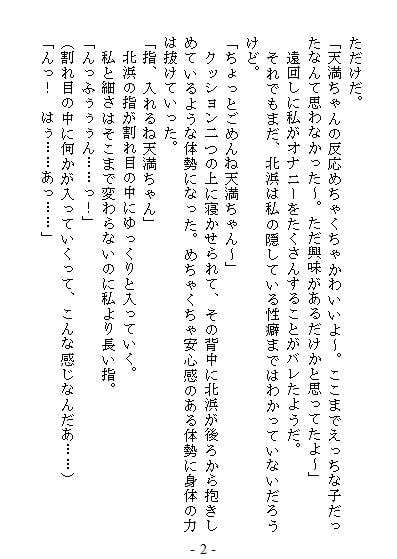 ただけだ。
「天満ちゃんの反応めちゃくちゃかわいいよ～。ここまでえっちな子だっ
たなんて思わなかったー。ただ興味があるだけかと思ってたよ～」
　遠回しに私がオナニーをたくさんすることがバレたようだ。
　それでもまだ、北浜は私の隠している性癖まではわかっていないだろう
けど。
「ちょっとごめんね天満ちゃん～」
　クッション二つの上に寝かせられて、その背中に北浜が後ろから抱きし
めているような体勢になった。めちゃくちゃ安心感のある体勢に身体の力
は抜けていった。
「指、入れるね天満ちゃん」
　北浜の指が割れ目の中にゆっくりと入っていく。
　私と細さはそこまで変わらないのに私より長い指。
「んっふぅぅぅん……っ！」
（割れ目の中に何かが入っていくって、こんな感じなんだあ……）
「んっ！　はぅ……あっ……」
- 2 -